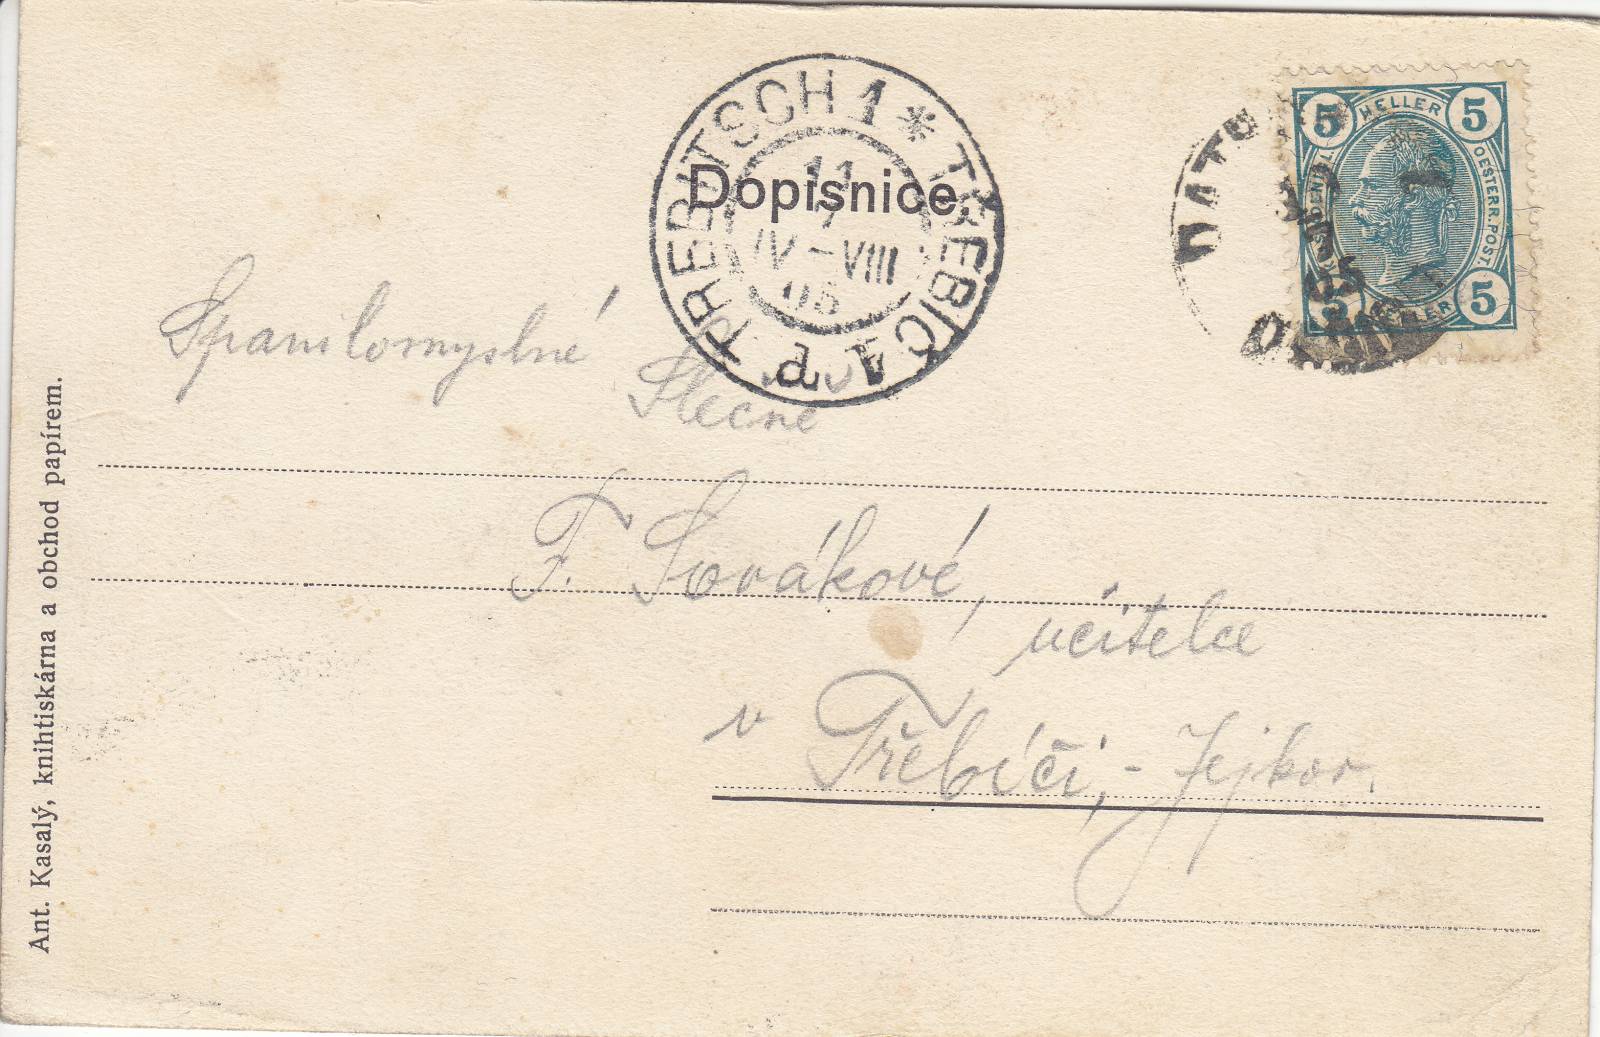 TREBITSCH 1 * TŘEBÍČ 1 d
11
7
IV-VIII
05
Dopisnice.
5 HELLER 5
OESTERR. POST.
5 HELLER 5
05
Spanilomyslné
Slečně
F. Novákové,
učitelce
v Třebíči, - Jejkov.
Ant. Kasalý, knihtiskárna a obchod papírem.